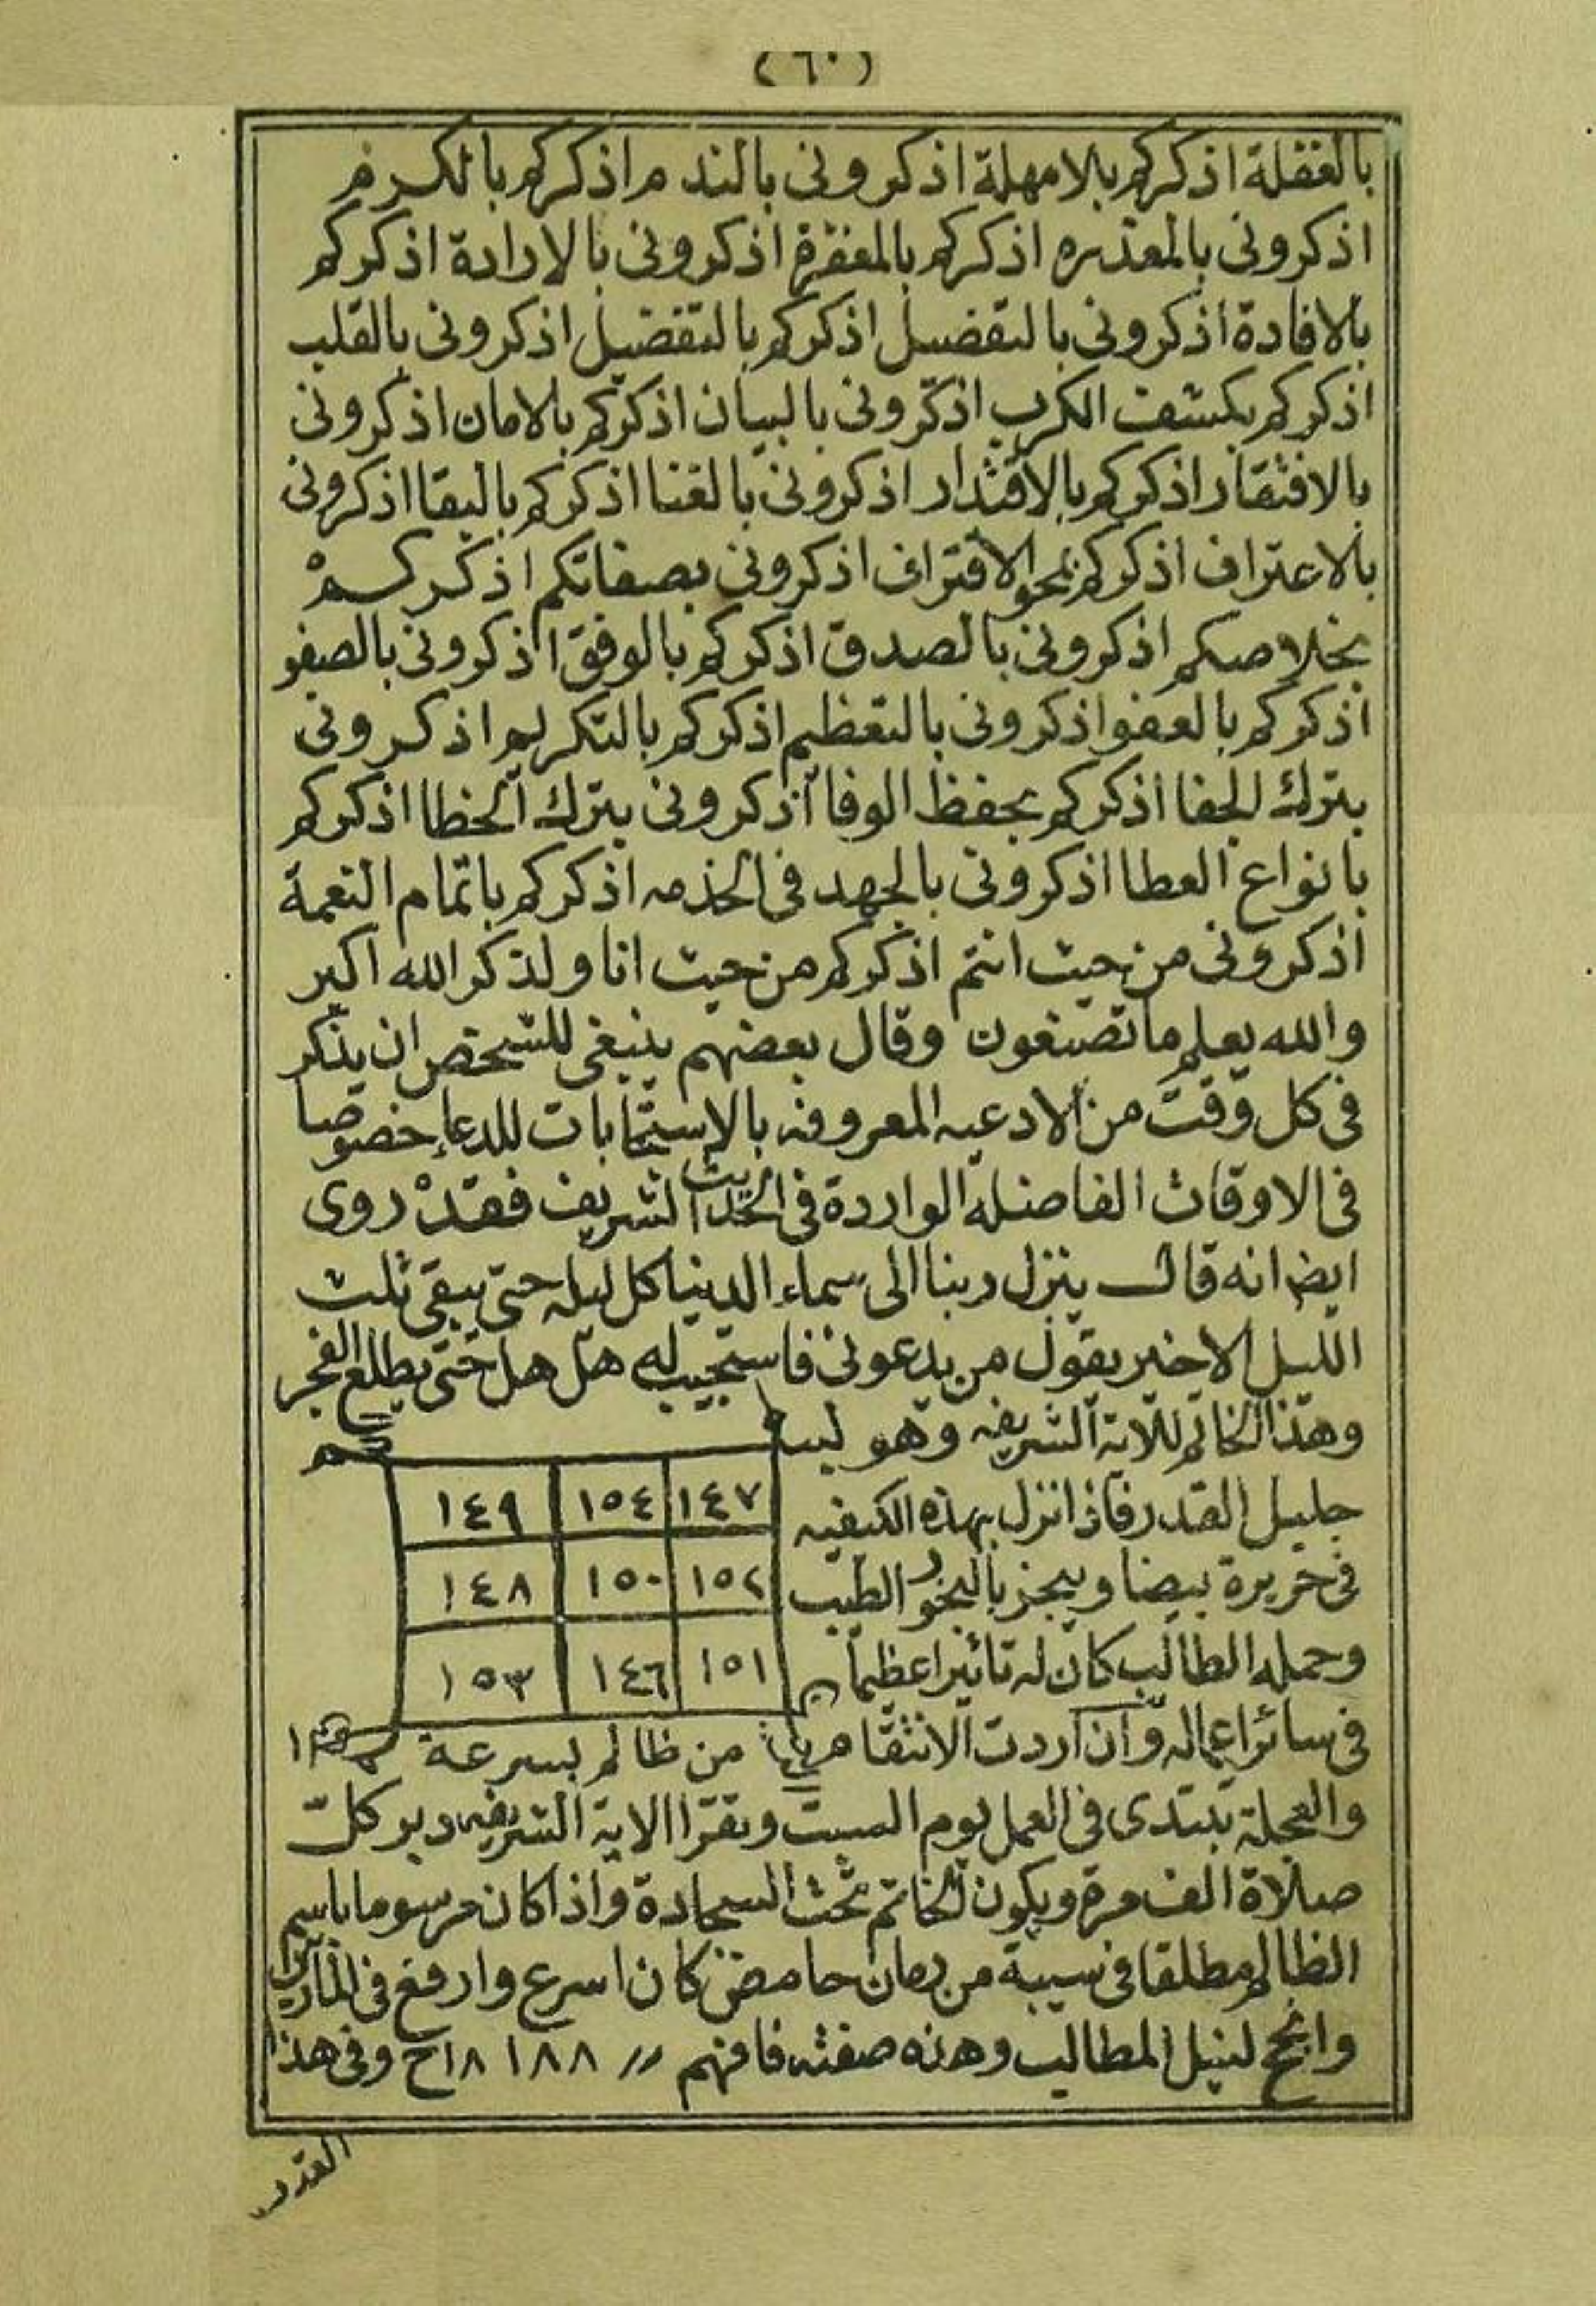 (٦٠)
بالغفلة اذكركم بلا مهلة اذكرونى بالندم اذكركم بالكرم
اذكرونى بالمعذره اذكركم بالمغفرة اذكرونى بالارادة اذكركم
بالافادة اذكرونى بالتفضل اذكركم بالتفضيل اذكرونى بالقلب
اذكركم بكشف الكرب اذكرونى بالبيان اذكركم بالامان اذكرونى
بالافتقار اذكركم بالاقتدار اذكرونى بالغنا اذكركم بالبقا اذكرونى
بالاعتراف اذكركم بمحو الاقتراف اذكرونى بصفاتكم اذكركم
بخلاصكم اذكرونى بالصدق اذكركم بالوفق اذكرونى بالصفو
اذكركم بالعفو اذكرونى بالتعظيم اذكركم بالتكريم اذكرونى
بترك الجفا اذكركم بحفظ الوفا اذكرونى بترك الخطا اذكركم
بانواع العطا اذكرونى بالجهد فى الخذمه اذكركم باتمام النعمة
اذكرونى من حيث انتم اذكركم من حيث انا ولذكر الله اكبر
والله يعلم ما تصنعون وقال بعضهم ينبغى للشخص ان يذكر
فى كل وقت من الادعيه المعروفه بالاستجابات للدعاء خصوصا
فى الاوقات الفاضله الواردة فى الحديث الشريف فقد روى
ايضا انه قال ينزل ربنا الى سماء الدنيا كل ليله حتى يبقى ثلث
الليل الاخير يقول من يدعونى فاستجيب له هل هل حتى يطلع الفجر
وهذا الخاتم للاية الشريفه وهو
جليل القدر فاذا نزل بهذه الكيفيه
١٤٧ ١٥٤ ١٤٩
فى حريرة بيضا وبخر بالبخور الطيب
١٥٢ ١٥٠ ١٤٨
وحمله الطالب كان له تاثيرا عظيما
١٥١ ١٤٦ ١٥٣
فى سائر اعماله وان اردت الانتقام من ظالم بسرعة
والعجلة تبتدى فى العمل يوم السبت وتقرا الاية الشريفه دبر كل
صلاة الف مرة ويكون الخاتم تحت السجادة واذا كان مرسوما باسم
الظالم مطلقا فى من رمان حامض كان اسرع وارفع فى
وانجح لنيل المطاليب وهذه صفته فافهم ١٨٨ ١٨ح وفى هذا
القدر